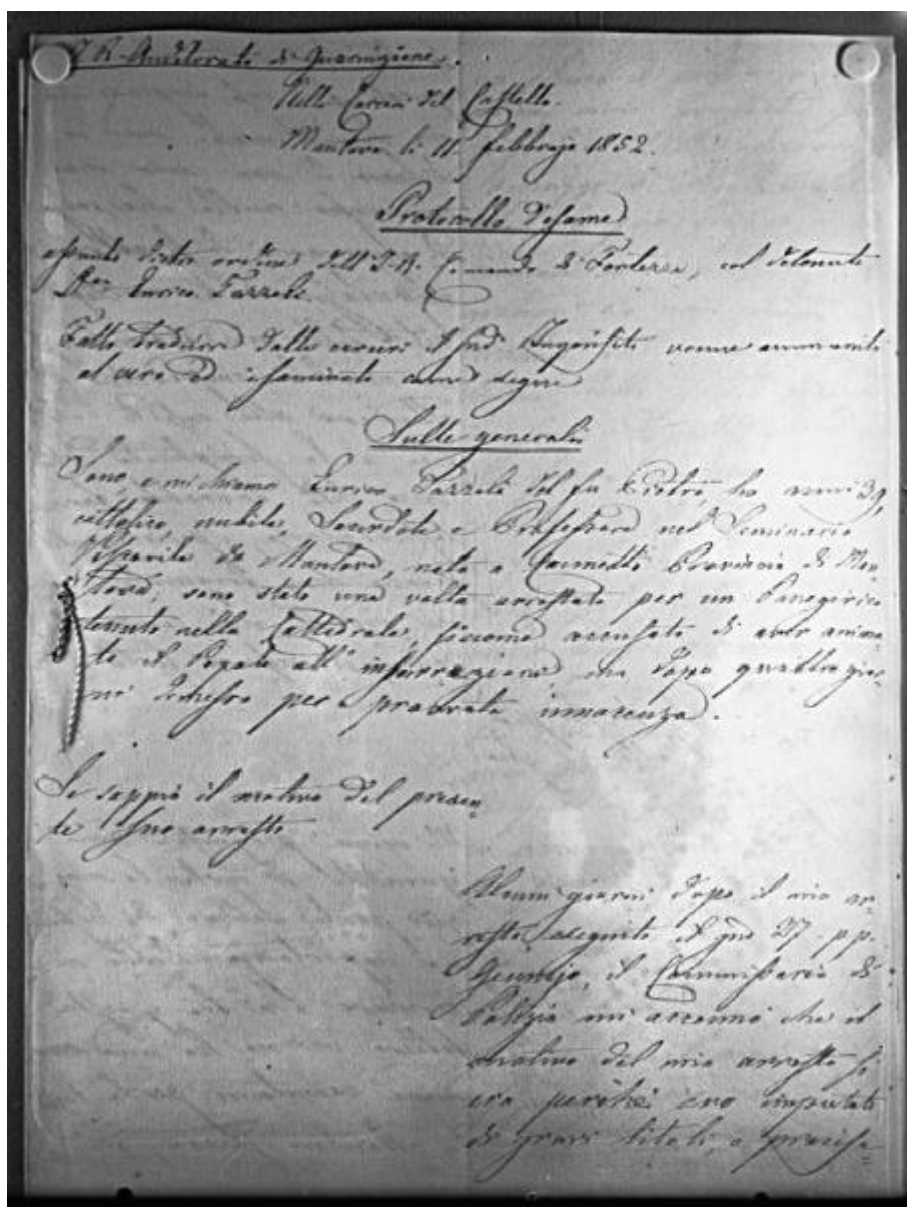 I. R. Auditorato di Guarnigione.
Nelle Carceri del Castello.
Mantova li 11 febbrajo 1852.
Protocollo d'esame
assunto dietro ordine dell'I. R. Comando di Fortezza, col detenuto
Don Enrico Tazzoli.
Fatto tradurre dalle carceri il sud. Inquisito venne ammonito
al vero ed esaminato come segue
Sulle generali
Sono, e mi chiamo Enrico Tazzoli del fu Pietro, ho anni 39,
cattolico, nubile, Sacerdote, e Professore nel Seminario
Vescovile di Mantova, nato a Canneto Provincia di Man-
tova; sono stato una volta arrestato per un Panegirico
tenuto nella Cattedrale, siccome accusato di aver anima-
to il Popolo all'insurrezione ma dopo quattro gior-
ni dimesso per provata innocenza.
Se sappia il motivo del presen-
te suo arresto
Alcuni giorni dopo il mio ar-
resto seguito il gno 27. p. p.
Gennajo, il Commissario di
Polizia mi accennò che il
motivo del mio arresto si
era perché ero imputato
di gravi titoli, e precisa